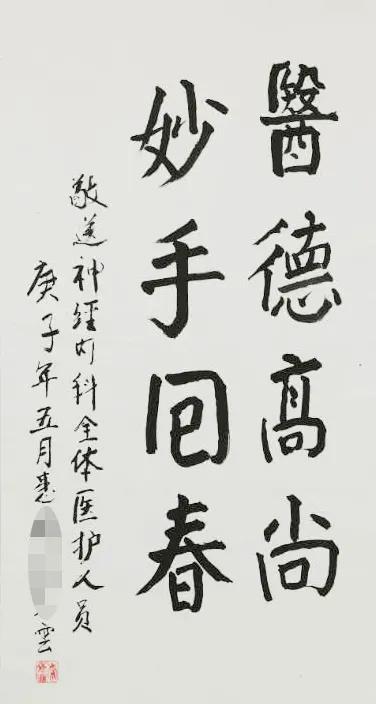 醫德高尚
妙手回春
敬送神經内科全体医护人员
庚子年五月惠